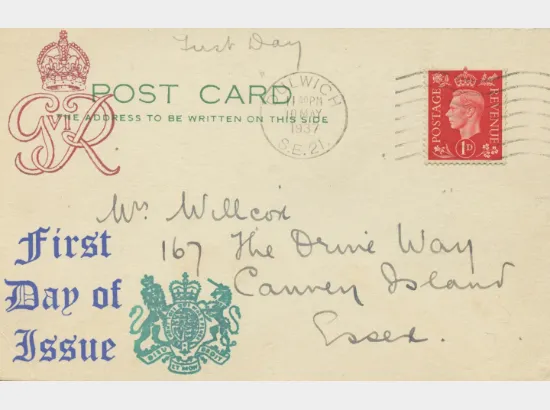 First Day
POST CARD
THE ADDRESS TO BE WRITTEN ON THIS SIDE
GVIR
DULWICH
10 MAY
1937
S.E.21.
POSTAGE
REVENUE
1D
Mrs Willcox
167 The Drive Way
Canvey Island
Essex.
First
Day of
Issue
DIEU
ET MON
DROIT